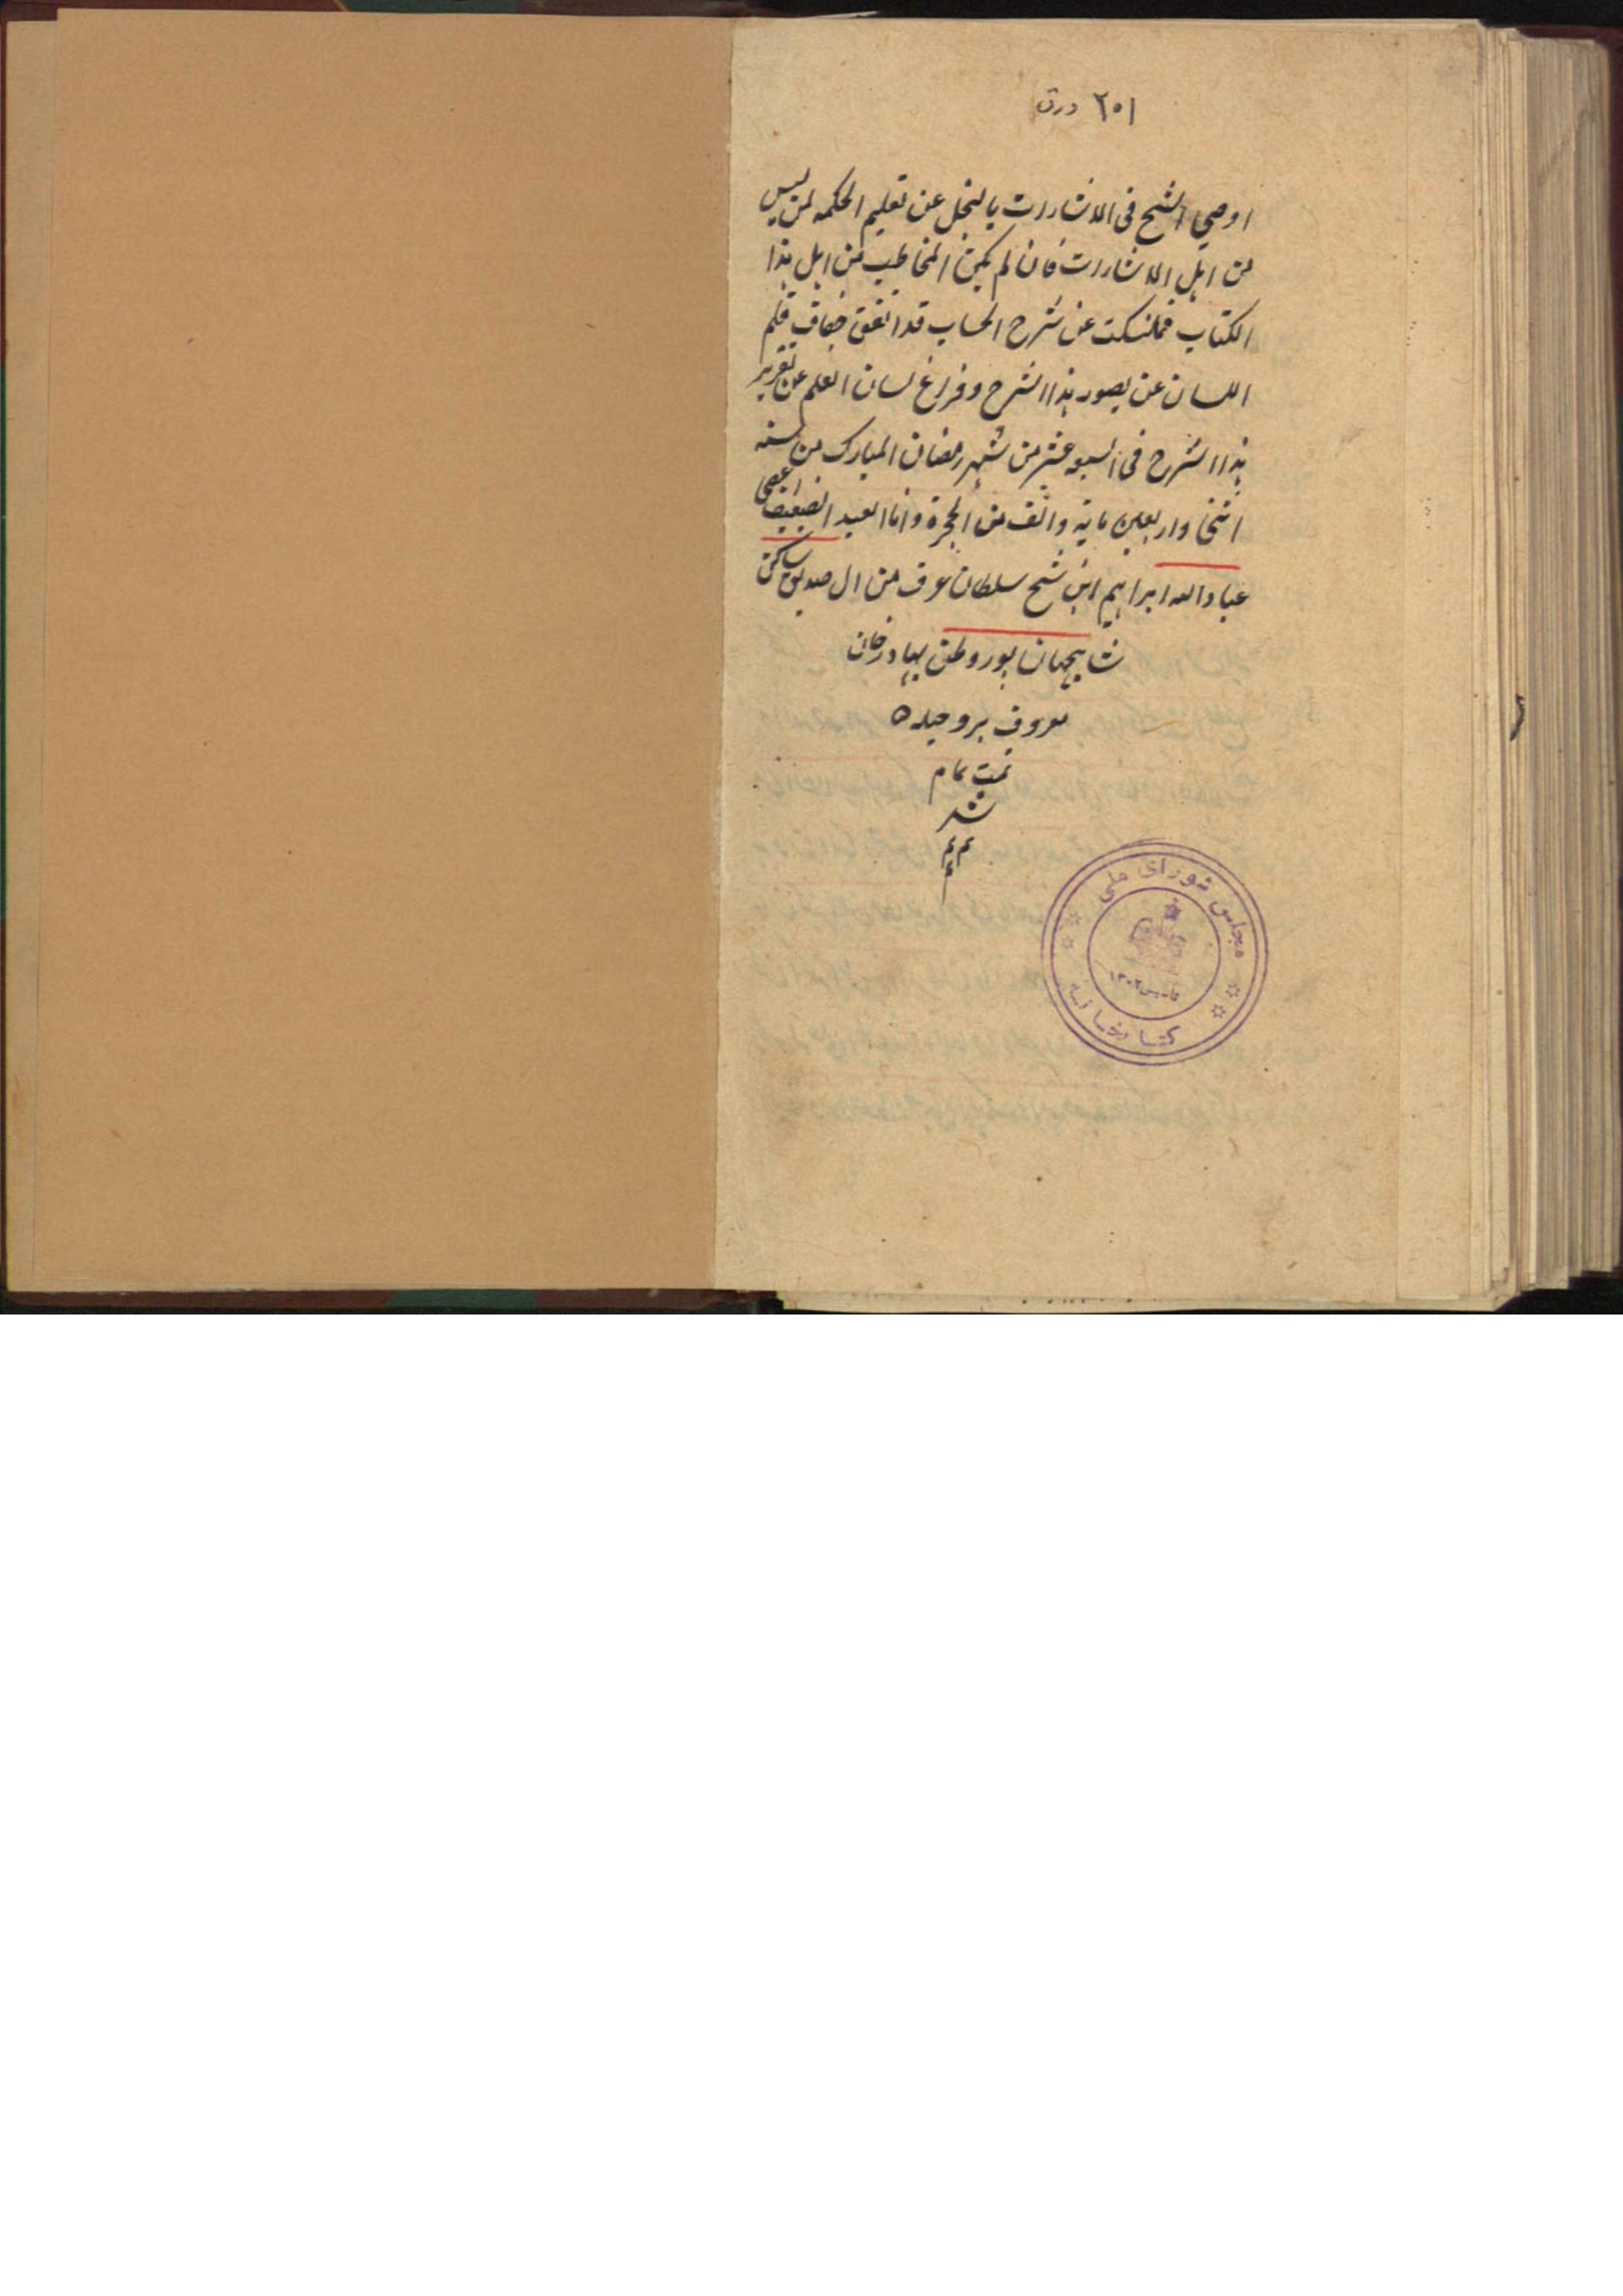 ٢٥١ ورق
اوصی الشیخ فی الاشارات بالبخل عن تعلیم الحکمه لمن لیس
من اهل الاشارات فان لم یکن المخاطب من اهل هذا
الکتاب فملنسکت عن شرح الحساب قد اتفق جفاف قلم
اللسان عن یصور هذا الشرح و فراغ لسان القلم عن تقریر
هذا الشرح فی السبعه عشر من شهر رمضان المبارک من سنه
اثنی و اربعین مایة والف من الهجرة و انا العبد الضعیف
عباد الله ابراهیم ابن شیخ سلطان عرف من ال صدیق ساکن
شاهجهان پور وطن بهادر خان
معروف بروحیله ٥
تمت تمام
شد
م م م
مجلس شورای ملی
تاسیس ١٣٠٢
کتابخانه